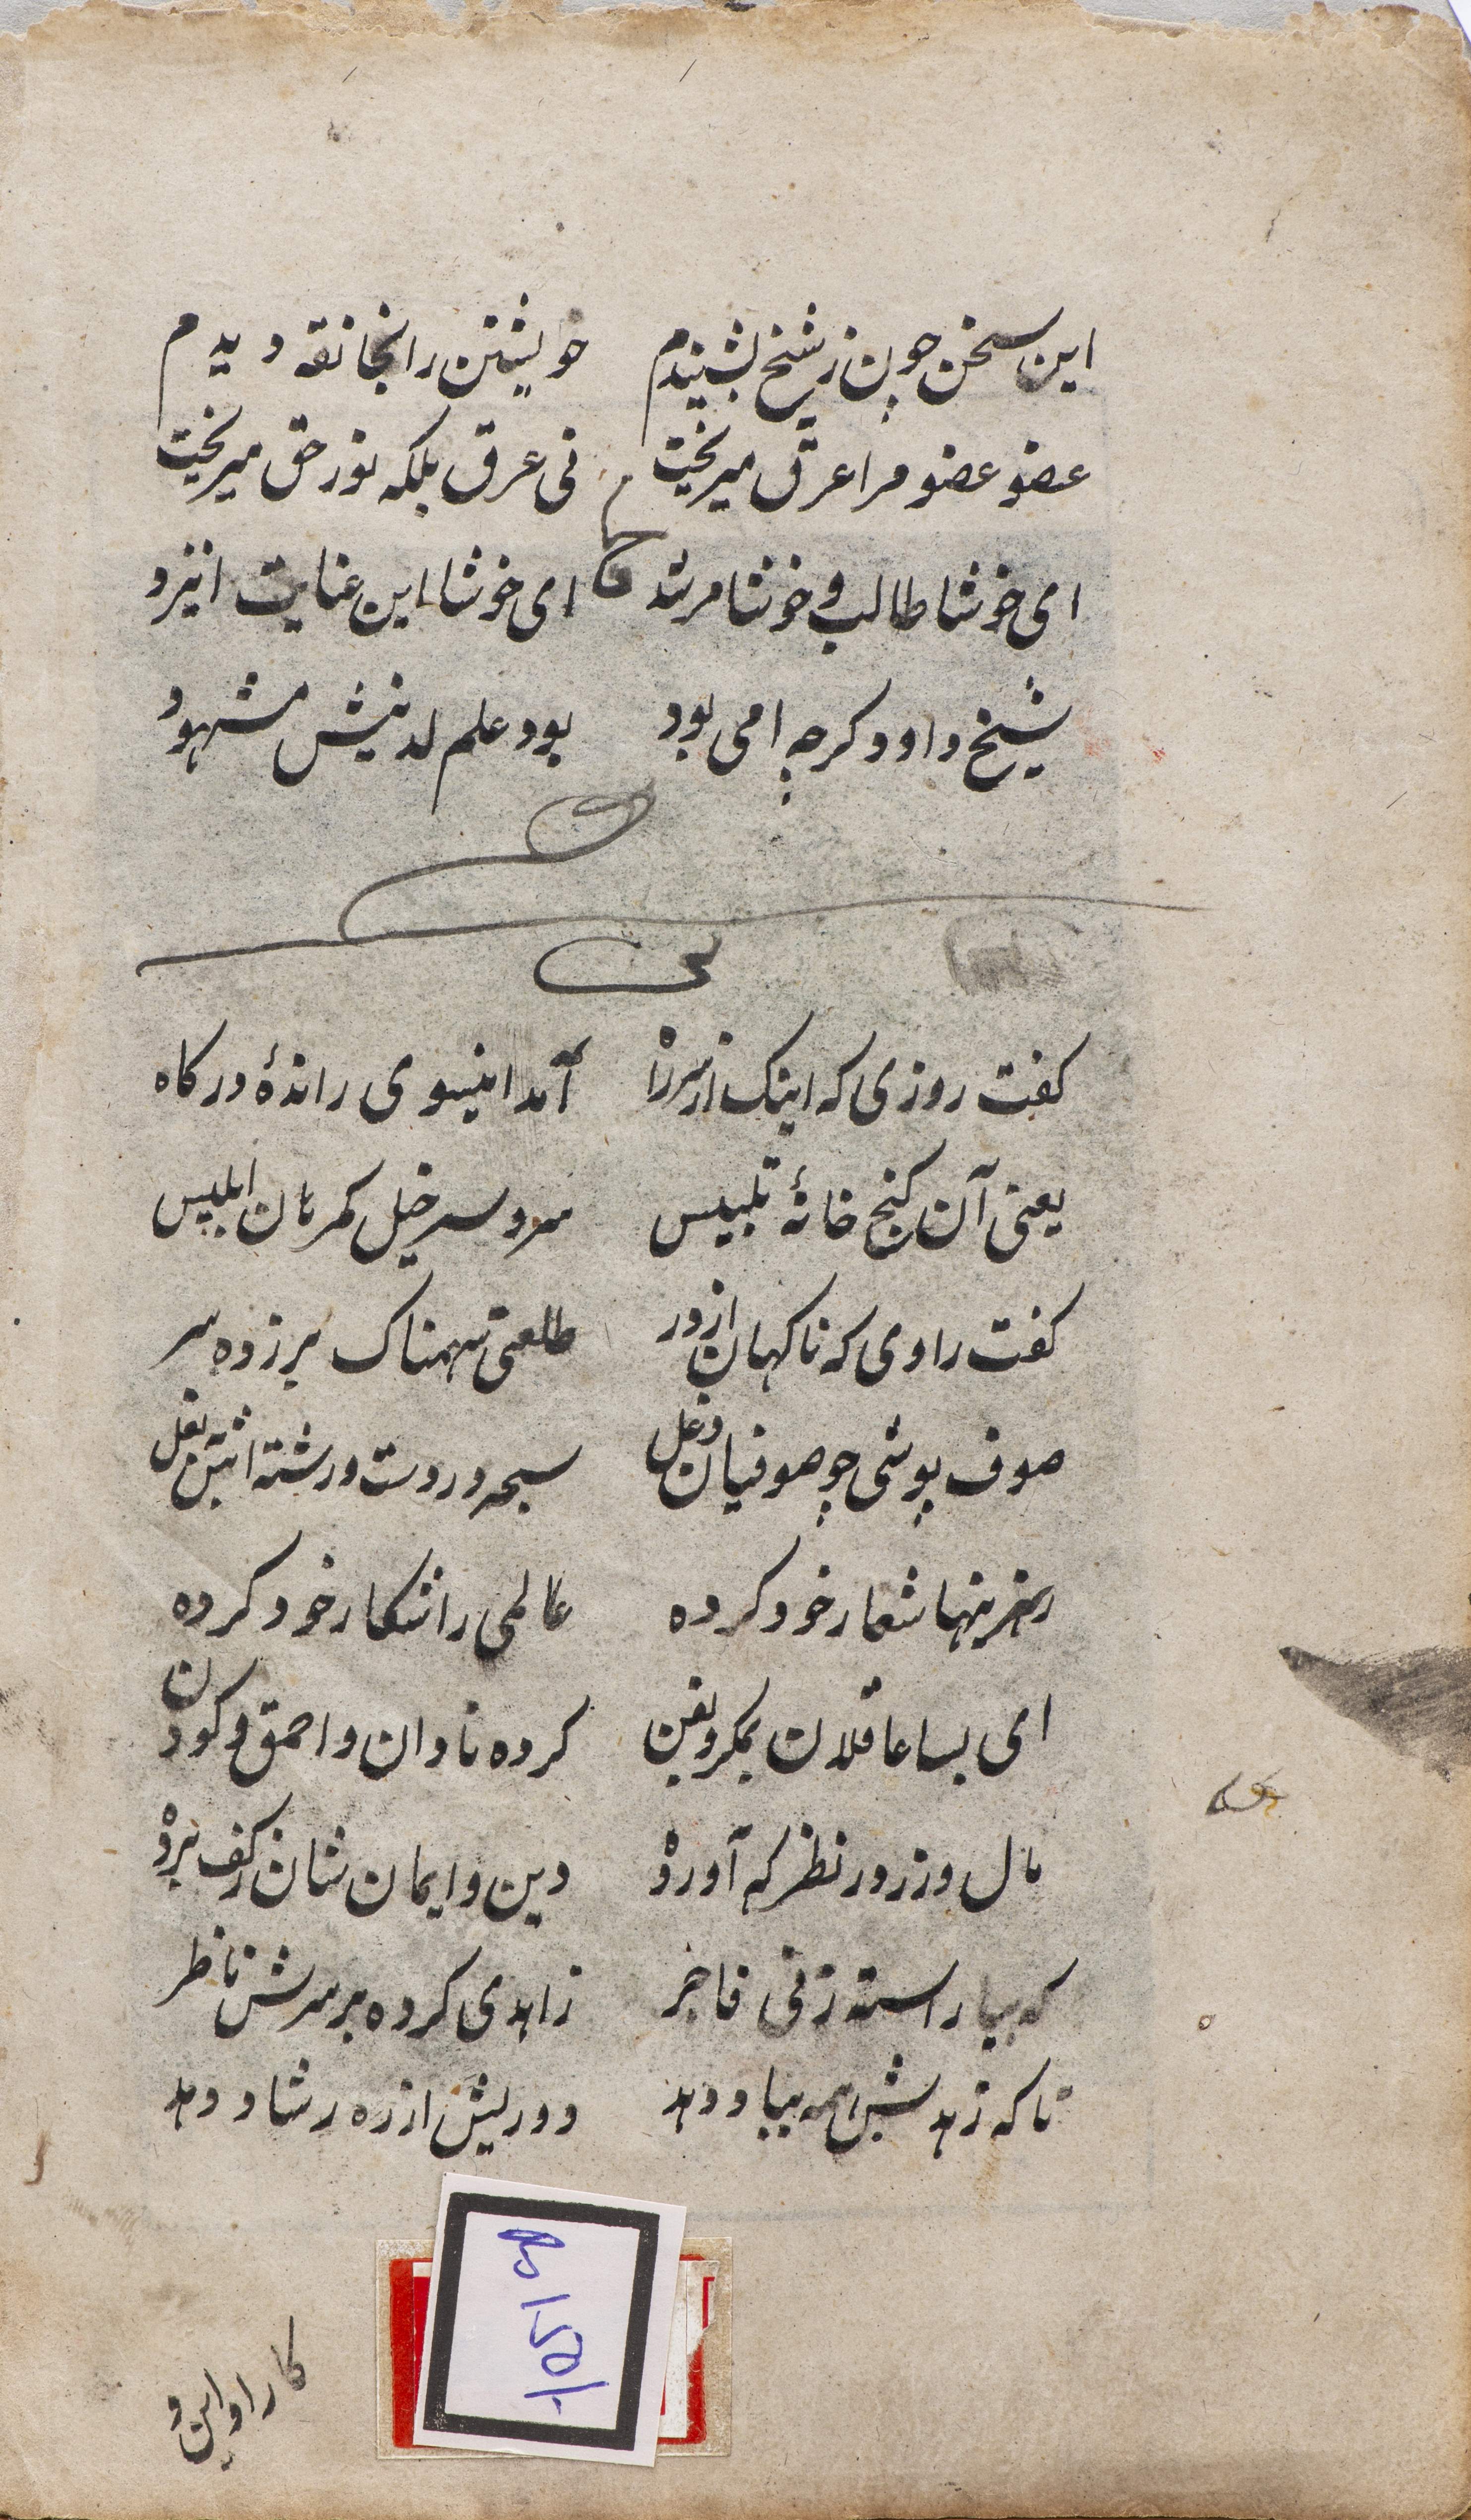 این سخن چون ز شیخ بشنیدم خویشتن را بخانقه دیدم
عضو عضو مرا عرق میریخت نی عرق بلکه نور حق میریخت
ای خوشا طالب و خوشا مرشد ای خوشا این عنایت ایزد
شیخ داود کرچه امی بود بود علم لدنیش مشهود
کفت روزی که اینک از سر راه آمد اینسوی راندهٔ درکاه
یعنی آن کنج خانهٔ تلبیس سر و سرخیل کمرهان ابلیس
کفت راوی که ناکهان از در طلعتی سهمناک بر زده سر
صوف پوشی چو صوفیان دغل سبحه در دست و رشته اش بغل
رهزنیها شعار خود کرده عالمی را شکار خود کرده
ای بسا عاقلان بمکر و بفن کرده نادان و احمق و کودن
مال و زر در نظر که آورد دین و ایمان شان ز کف برد
که بیاراسته زنی فاجر زاهدی کرده بر سرش ناظر
تا که زهدش همه بباد دهد دوریش از ره رشاد دهد
کار او این